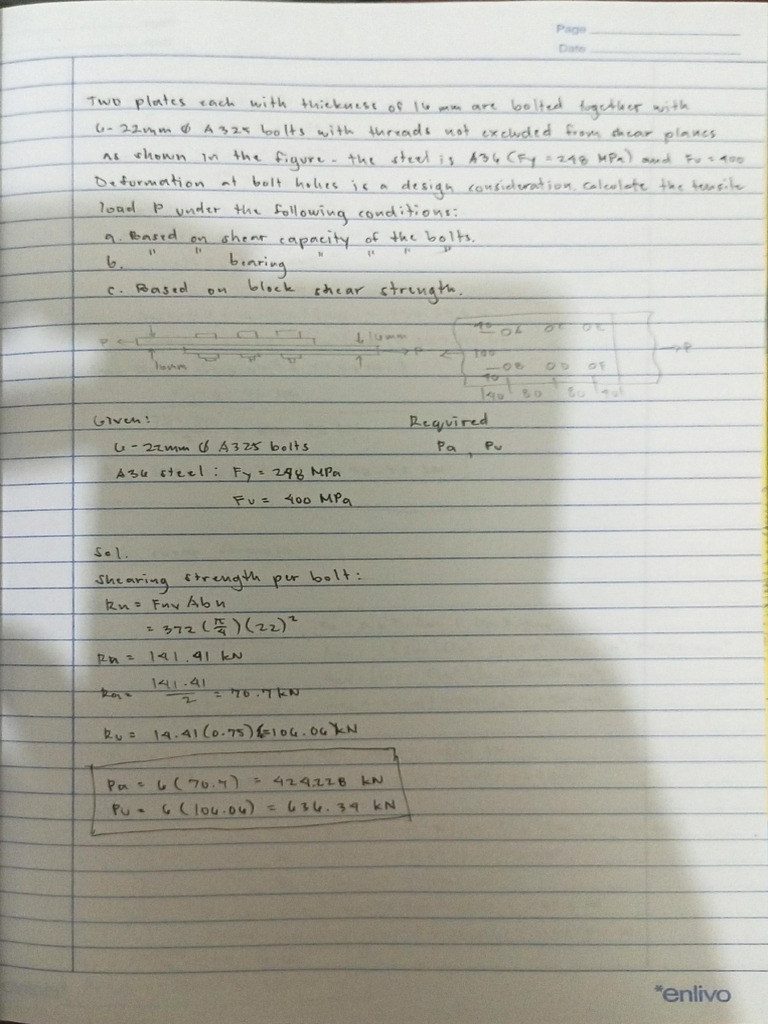 Page
Date
Two plates each with thickness of 16 mm are bolted together with
6-22mm φ A325 bolts with threads not excluded from shear planes
as shown in the figure. the steel is A36 (Fy = 248 MPa) and Fu = 400
Deformation at bolt holes is a design consideration. Calculate the tensile
load P under the following conditions:
a. Based on shear capacity of the bolts.
b. " " bearing " " " "
c. Based on block shear strength.
P 16mm P
16mm
40
100
40
80 80
P
Given: Required
6-22mm φ A325 bolts Pa, Pu
A36 steel: Fy = 248 MPa
Fu = 400 MPa
Sol.
Shearing strength per bolt:
Rn = Fnv Ab n
= 372 (π/4)(22)²
Rn = 141.41 kN
Ra = 141.41/2 = 70.7 kN
Ru = 14.41(0.75) = 106.06 kN
Pa = 6(70.7) = 424.228 kN
Pu = 6(106.06) = 636.34 kN
*enlivo